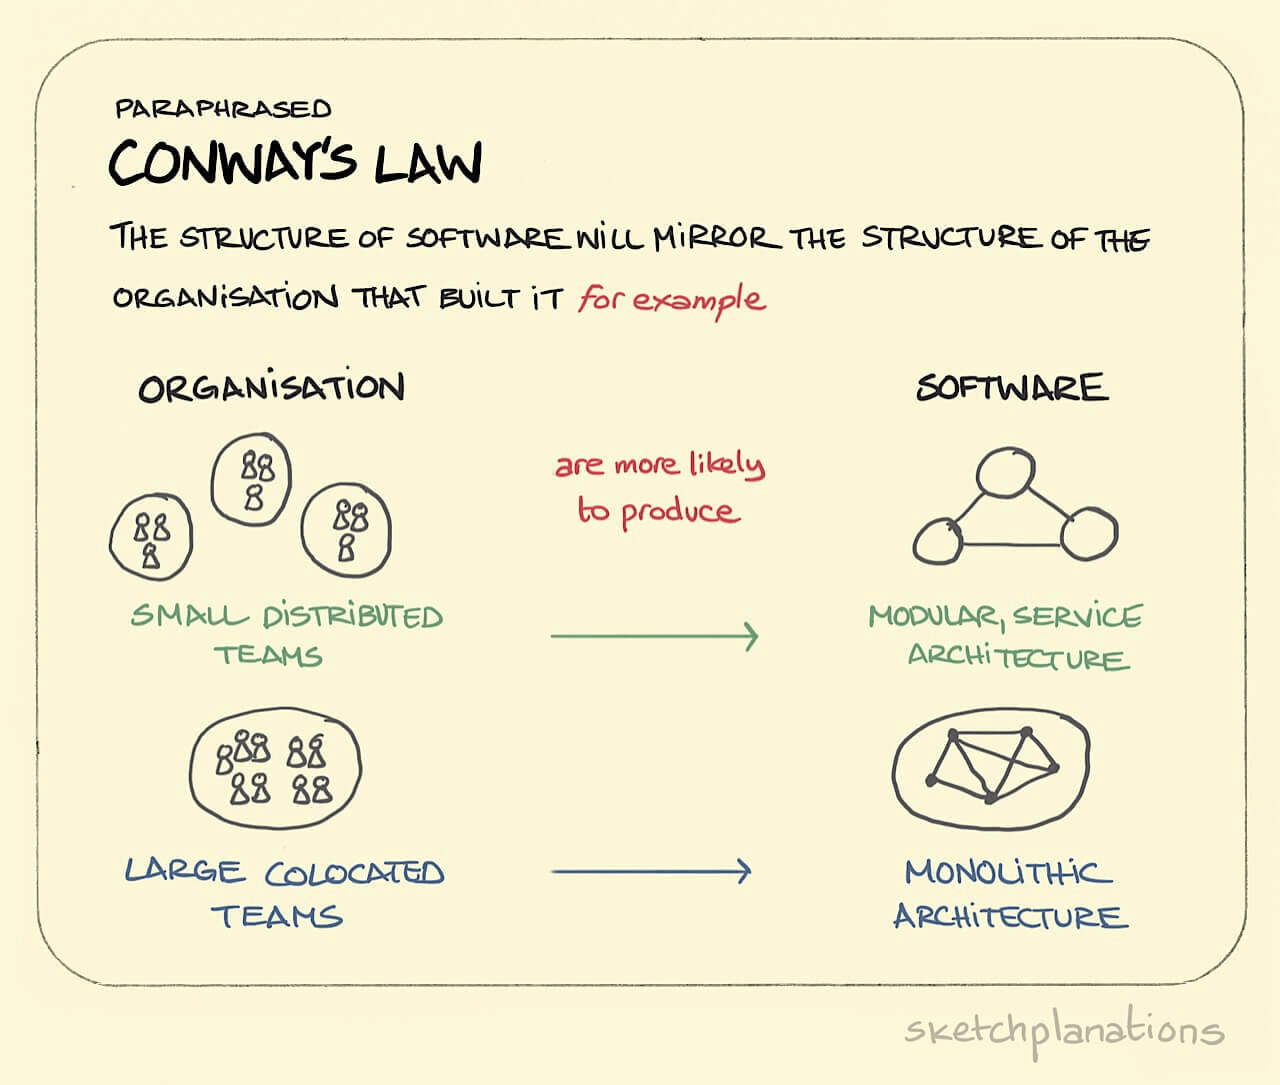 PARAPHRASED
CONWAY'S LAW
THE STRUCTURE OF SOFTWARE WILL MIRROR THE STRUCTURE OF THE
ORGANISATION THAT BUILT IT for example
ORGANISATION
SOFTWARE
are more likely
to produce
SMALL DISTRIBUTED
TEAMS
MODULAR, SERVICE
ARCHITECTURE
LARGE COLOCATED
TEAMS
MONOLITHIC
ARCHITECTURE
sketchplanations